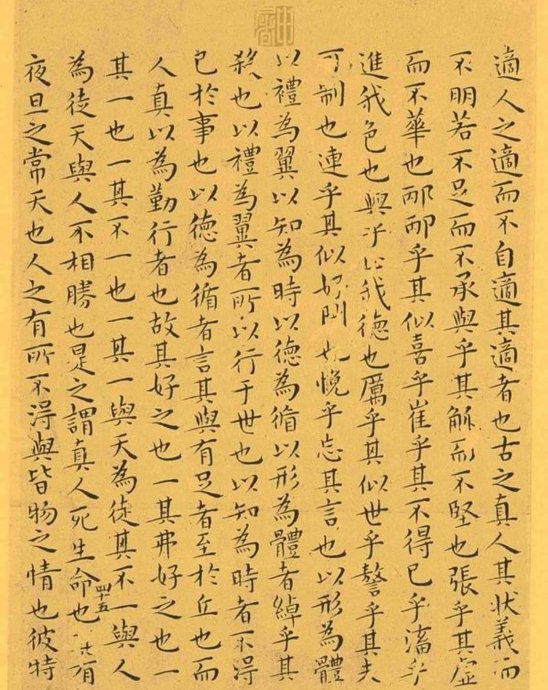 適人之適而不自適其適者也古之真人其狀義而
不明若不足而不承與乎其觚而不堅也張乎其虛
而不華也邴邴乎其似喜乎崔乎其不得已乎滀乎
進我色也與乎止我徳也厲乎其似世乎謷乎其夫
可制也連乎其似好閇也悅乎忘其言也以形為體
以禮為翼以知為時以徳為循以形為體者綽乎其
殺也以禮為翼者所以行于世也以知為時者不得
已於事也以徳為循者言其與有足者至於丘也而
人真以為勤行者也故其好之也一其弗好之也一
其一也一其不一也一其一與天為徒其不一與人
為徒天與人不相勝也是之謂真人死生命也其有
四十五
夜旦之常天也人之有所不得與皆物之情也彼特